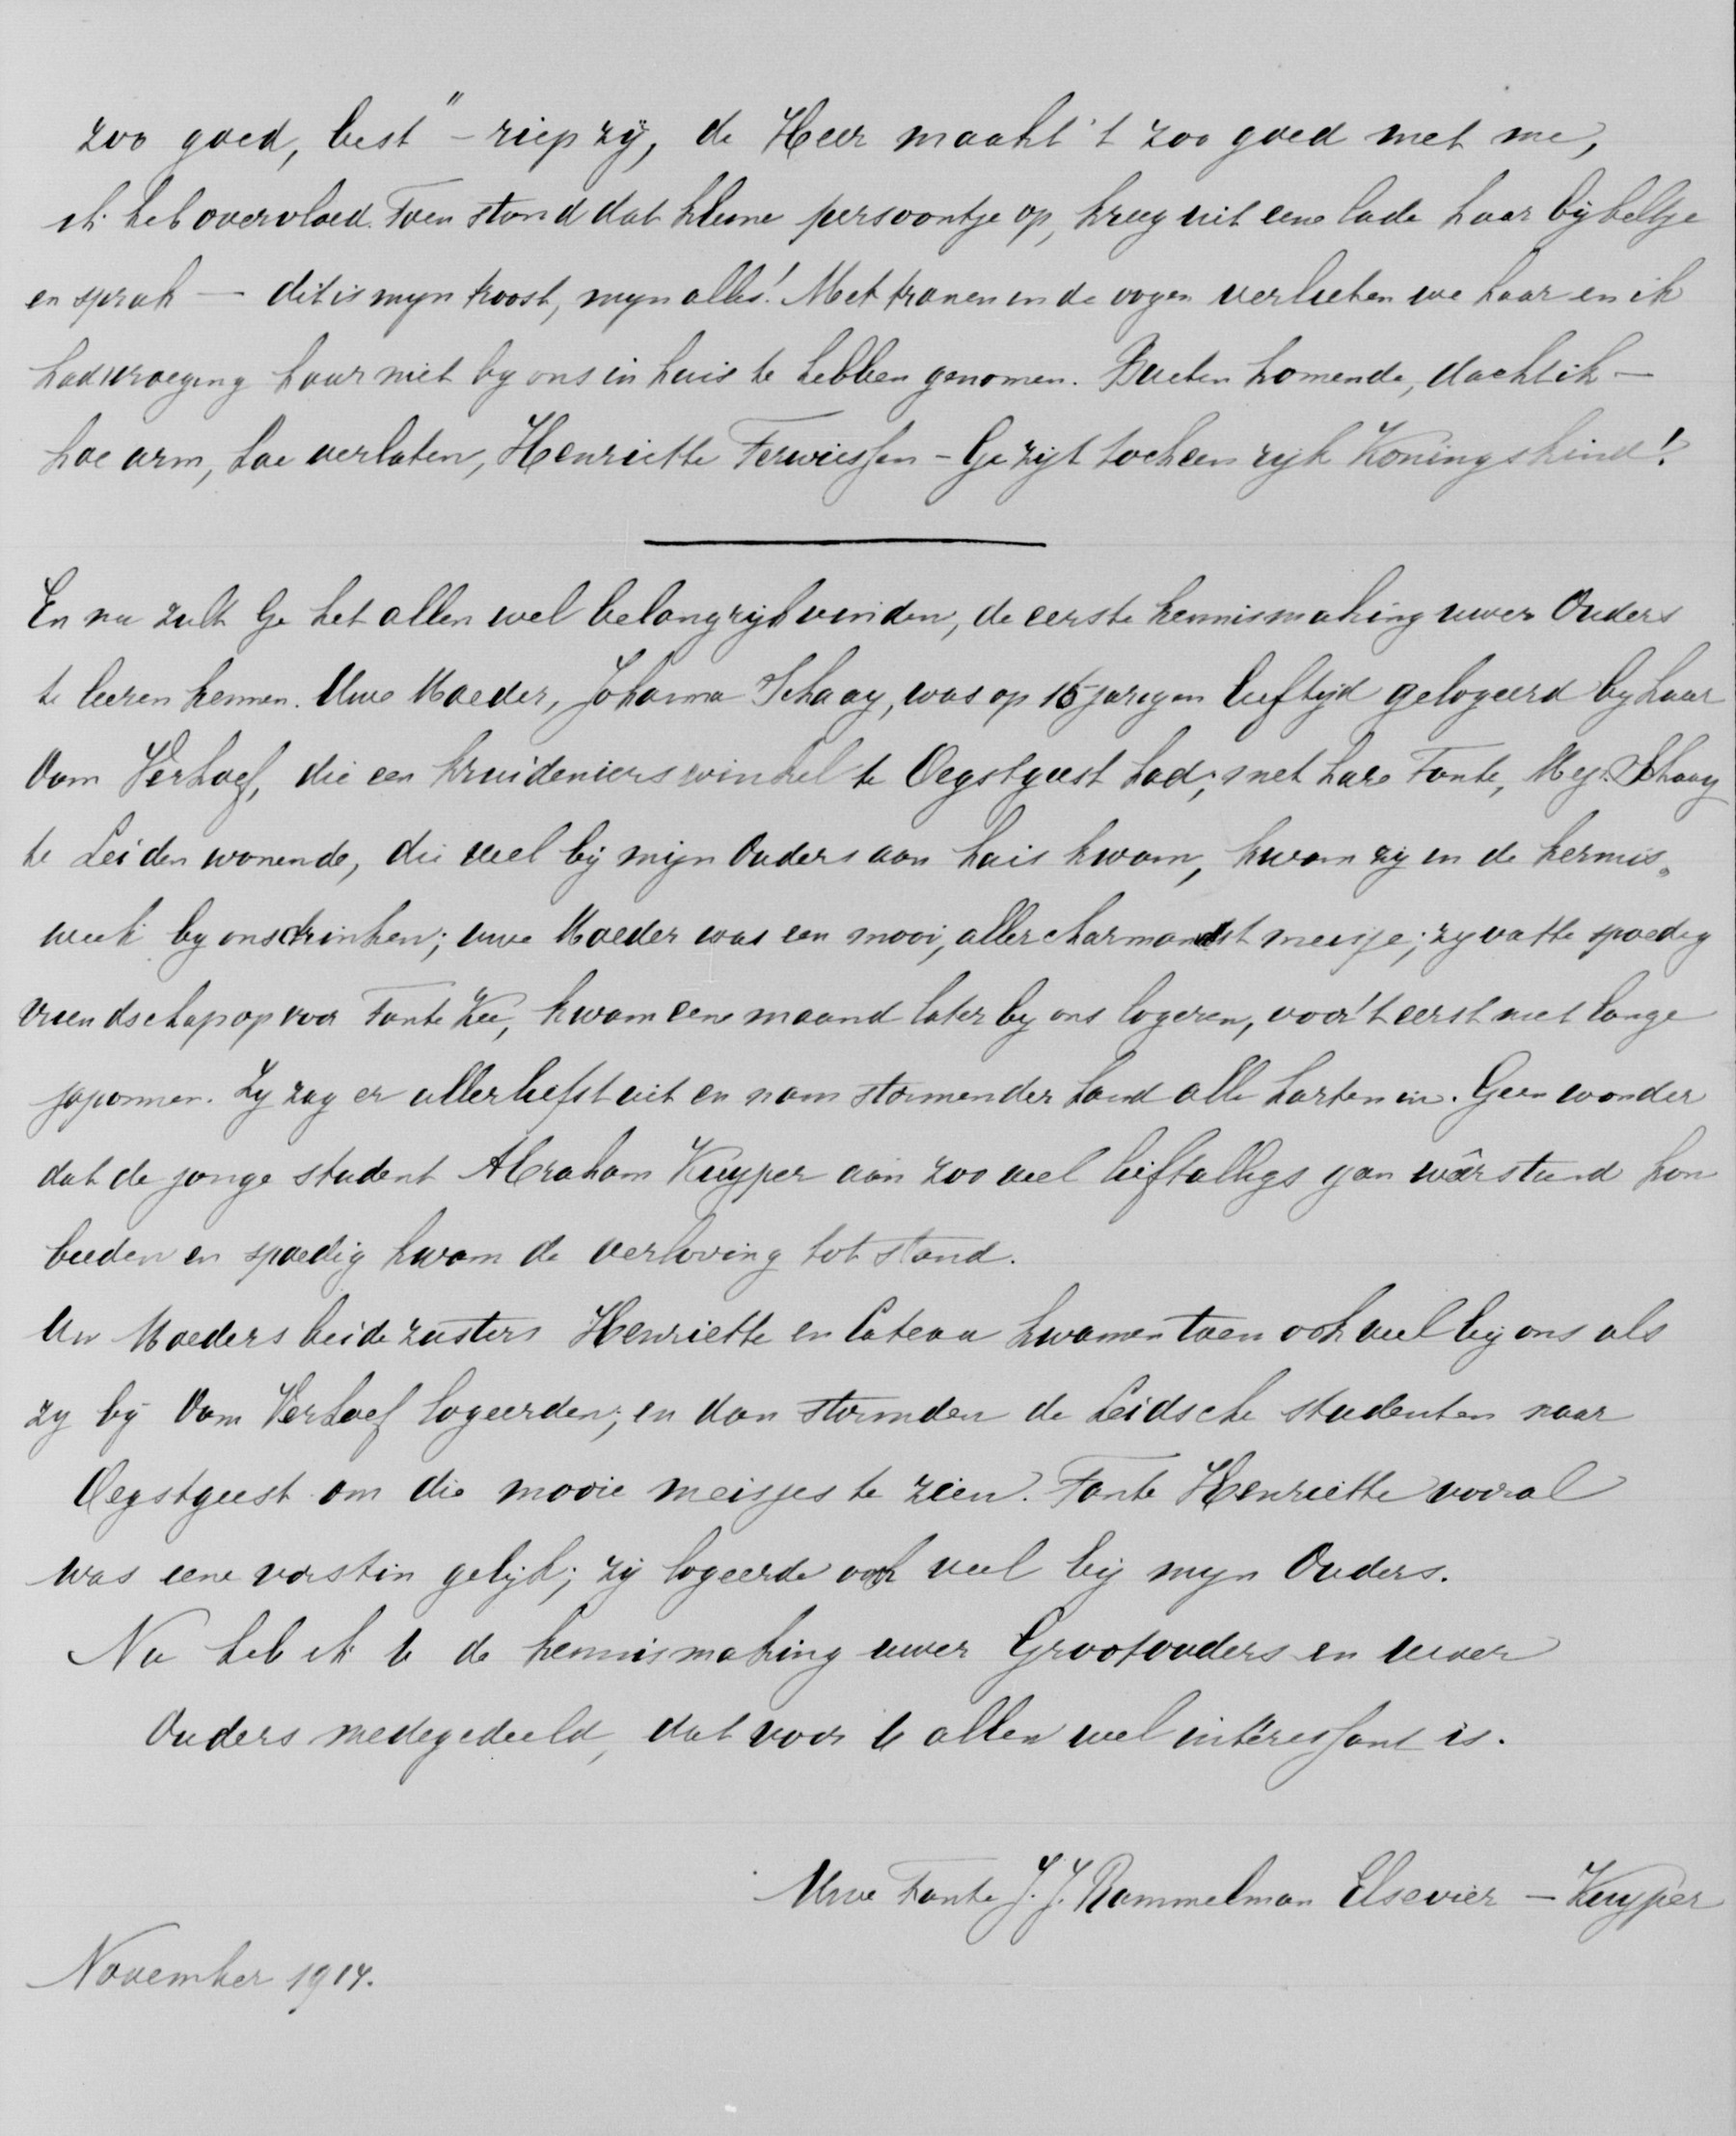 zoo goed, best" – riep zij, de Heer maakt 't zoo goed met me,
ik heb overvloed. Toen stond dat kleine persoontje op, kreeg uit eene lade haar bijbeltje
en sprak — dit is mijn troost, mijn alles! Met tranen in de oogen verlieten we haar en ik
had wroeging haar niet by ons in huis te hebben genomen. Buiten komende, dacht ik —
hoe arm, hoe verlaten, Henriette Terwiessen – Ge zijt toch een rijk Koningskind!
En nu zult Ge het allen wel belangrijk vinden, de eerste kennismaking uwer Ouders
te leeren kennen. Uwe Moeder, Johanna Schaay, was op 15 jarigen leeftijd gelogeerd by haar
Oom Verhoef, die een kruidenierswinkel te Oegstgeest had; met hare Tante, Mej. Schaay
te Leiden wonende, die veel bij mijn Ouders aan huis kwam, kwam zij in de kermis„
week by ons drinken; uwe Moeder was een mooi, allercharmandst meisje; zy vatte spoedig
vriendschap op voor Tante Kee, kwam eene maand later by ons logeren, voor 't eerst met lange
japonnen. Zy zag er allerliefst uit en nam stormender hand alle harten in. Geen wonder
dat de jonge student Abraham Kuyper aan zoo veel lieftalligs gan wêerstand kon
bieden en spoedig kwam de verloving tot stand.
Uw Moeders beide zusters Henriette en Cateau kwamen toen ook veel bij ons als
zy bij Oom Verhoef logeerden; en dan stormden de Leidsche studenten naar
Oegstgeest om die mooie meisjes te zien. Tante Henriette vooral
was eene vorstin gelijk; zij logeerde ook veel bij mijn Ouders.
Nu heb ik U de kennismaking uwer Grootouders en uwer
Ouders medegedeeld, dat voor U allen wel interessant is.
Uwe Tante J. J. Rammelman Elsevier – Kuyper
November 1914.